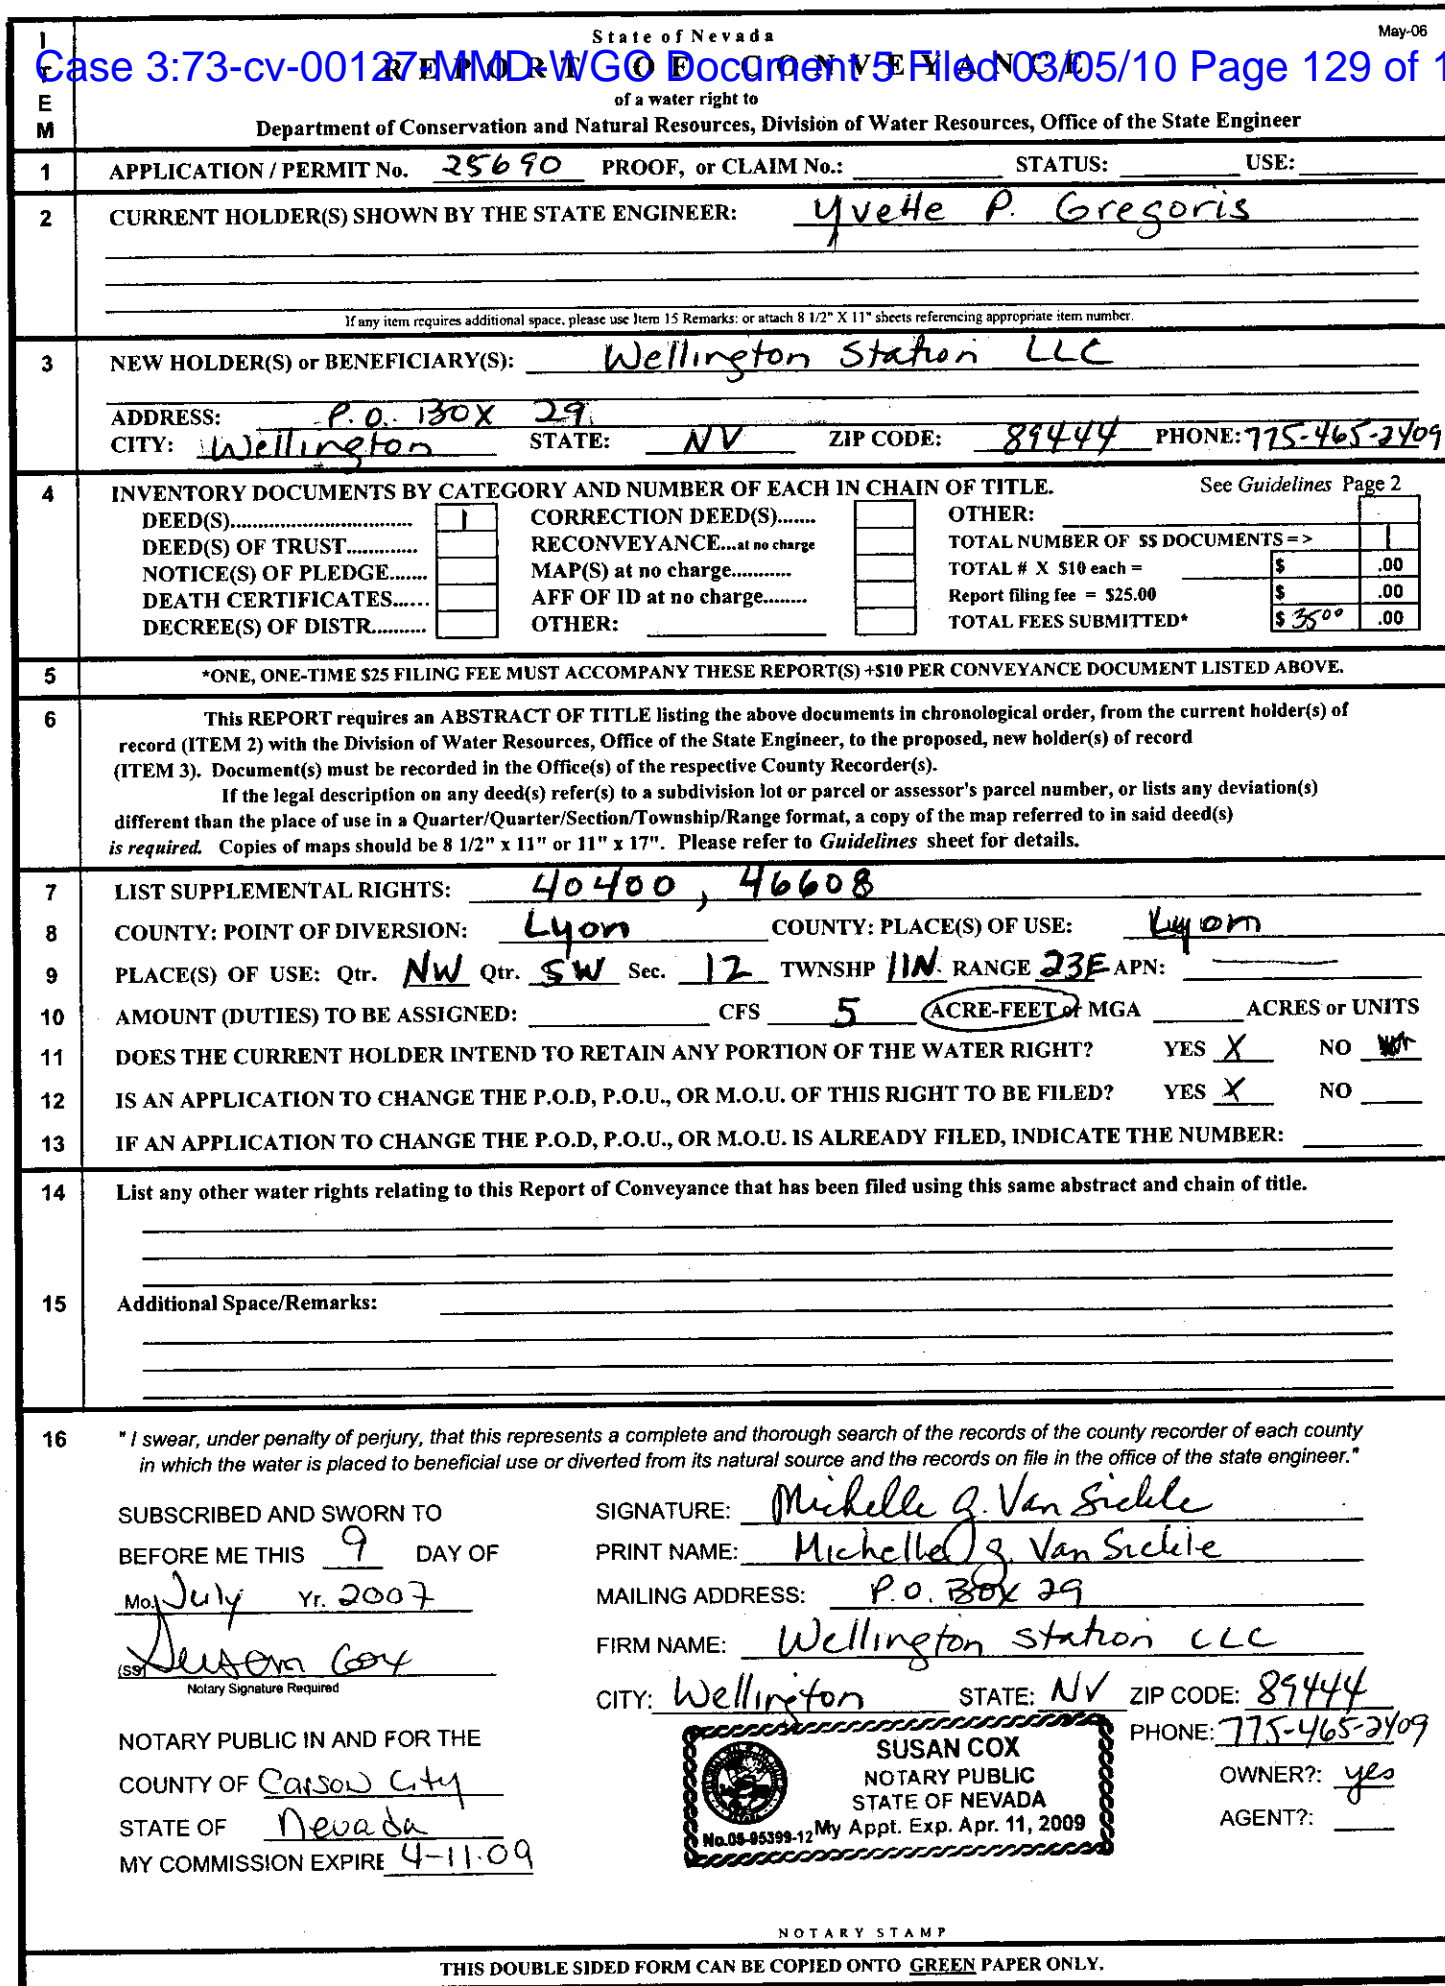 State of Nevada May-06
ITEM
REPORT OF CONVEYANCE
Case 3:73-cv-00127-MMD-WGC Document 5 Filed 03/05/10 Page 129 of 1
of a water right to
Department of Conservation and Natural Resources, Division of Water Resources, Office of the State Engineer
1 APPLICATION / PERMIT No. 25690 PROOF, or CLAIM No.: STATUS: USE:
2 CURRENT HOLDER(S) SHOWN BY THE STATE ENGINEER: Yvette P. Gregoris
If any item requires additional space, please use Item 15 Remarks: or attach 8 1/2" X 11" sheets referencing appropriate item number.
3 NEW HOLDER(S) or BENEFICIARY(S): Wellington Station LLC
ADDRESS: P.O. BOX 29
CITY: Wellington STATE: NV ZIP CODE: 89444 PHONE: 775-465-2409
4 INVENTORY DOCUMENTS BY CATEGORY AND NUMBER OF EACH IN CHAIN OF TITLE. See Guidelines Page 2
DEED(S)................................. 1 CORRECTION DEED(S)....... OTHER:
DEED(S) OF TRUST............. RECONVEYANCE...at no charge TOTAL NUMBER OF $$ DOCUMENTS = > 1
NOTICE(S) OF PLEDGE....... MAP(S) at no charge........... TOTAL # X $10 each = $ .00
DEATH CERTIFICATES...... AFF OF ID at no charge........ Report filing fee = $25.00 $ .00
DECREE(S) OF DISTR.......... OTHER: TOTAL FEES SUBMITTED* $ 35 00 .00
5 *ONE, ONE-TIME $25 FILING FEE MUST ACCOMPANY THESE REPORT(S) +$10 PER CONVEYANCE DOCUMENT LISTED ABOVE.
6 This REPORT requires an ABSTRACT OF TITLE listing the above documents in chronological order, from the current holder(s) of
record (ITEM 2) with the Division of Water Resources, Office of the State Engineer, to the proposed, new holder(s) of record
(ITEM 3). Document(s) must be recorded in the Office(s) of the respective County Recorder(s).
If the legal description on any deed(s) refer(s) to a subdivision lot or parcel or assessor's parcel number, or lists any deviation(s)
different than the place of use in a Quarter/Quarter/Section/Township/Range format, a copy of the map referred to in said deed(s)
is required. Copies of maps should be 8 1/2" x 11" or 11" x 17". Please refer to Guidelines sheet for details.
7 LIST SUPPLEMENTAL RIGHTS: 40400, 46608
8 COUNTY: POINT OF DIVERSION: Lyon COUNTY: PLACE(S) OF USE: Lyon
9 PLACE(S) OF USE: Qtr. NW Qtr. SW Sec. 12 TWNSHP 11N. RANGE 23E APN:
10 AMOUNT (DUTIES) TO BE ASSIGNED: CFS 5 ACRE-FEET or MGA ACRES or UNITS
11 DOES THE CURRENT HOLDER INTEND TO RETAIN ANY PORTION OF THE WATER RIGHT? YES X NO
12 IS AN APPLICATION TO CHANGE THE P.O.D, P.O.U., OR M.O.U. OF THIS RIGHT TO BE FILED? YES X NO
13 IF AN APPLICATION TO CHANGE THE P.O.D, P.O.U., OR M.O.U. IS ALREADY FILED, INDICATE THE NUMBER:
14 List any other water rights relating to this Report of Conveyance that has been filed using this same abstract and chain of title.
15 Additional Space/Remarks:
16 "I swear, under penalty of perjury, that this represents a complete and thorough search of the records of the county recorder of each county
in which the water is placed to beneficial use or diverted from its natural source and the records on file in the office of the state engineer."
SUBSCRIBED AND SWORN TO SIGNATURE: Michelle J. Van Sickle
BEFORE ME THIS 9 DAY OF PRINT NAME: Michelle J. Van Sickle
Mo. July Yr. 2007 MAILING ADDRESS: P.O. Box 29
(SS) Susan Cox FIRM NAME: Wellington Station LLC
Notary Signature Required
CITY: Wellington STATE: NV ZIP CODE: 89444
NOTARY PUBLIC IN AND FOR THE PHONE: 775-465-2409
COUNTY OF Carson City OWNER?: yes
STATE OF Nevada AGENT?:
MY COMMISSION EXPIRE 4-11-09
SUSAN COX
NOTARY PUBLIC
STATE OF NEVADA
No.05-95399-12 My Appt. Exp. Apr. 11, 2009
NOTARY STAMP
THIS DOUBLE SIDED FORM CAN BE COPIED ONTO GREEN PAPER ONLY.